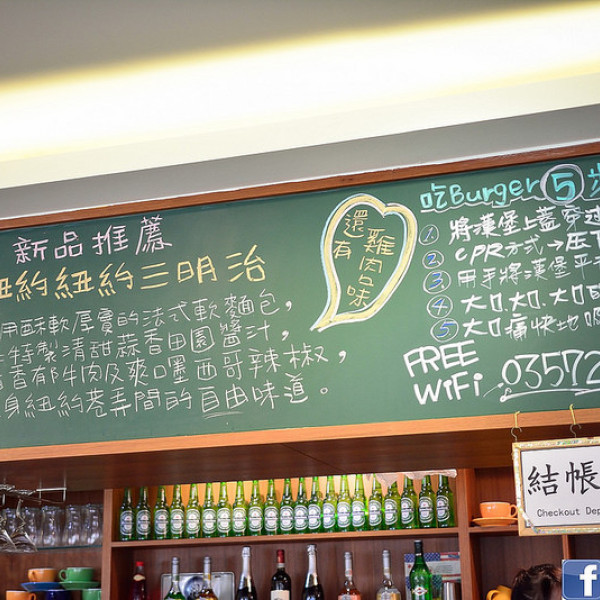 新品推薦
紐約紐約三明治
用酥軟厚實的法式軟麵包，
特製清甜蒜香田園醬汁，
香郁牛肉及爽口墨西哥辣椒，
身紐約巷弄間的自由味道。
還有
雞肉口味
吃Burger⑤步
① 將漢堡上蓋穿過
② CPR方式→壓下
③ 用手將漢堡平
④ 大口.大口.大口
⑤ 大口痛快地
FREE
WiFi
03572
結帳
Checkout Dep
f